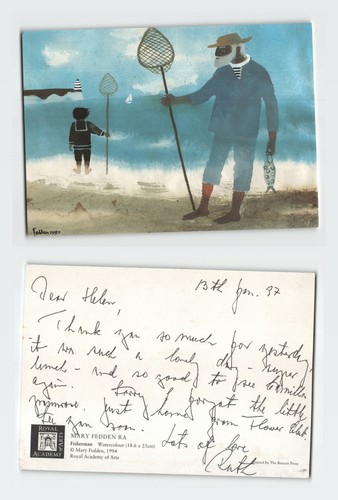 Fedden 1987
13th Jan. 97
Dear Helen,
Thank you so much for yesterday
it was such a lovely day - super
lunch - and so good to see
again. Sorry I forgot the little
primrose. Just home from Flower Club.
See you soon.
Lots of love
Ruth
ROYAL
ACADEMY
OF ARTS
MARY FEDDEN RA
Fisherman Watercolour (18.6 x 23cm)
© Mary Fedden, 1994
Royal Academy of Arts
Printed by The Beacon Press